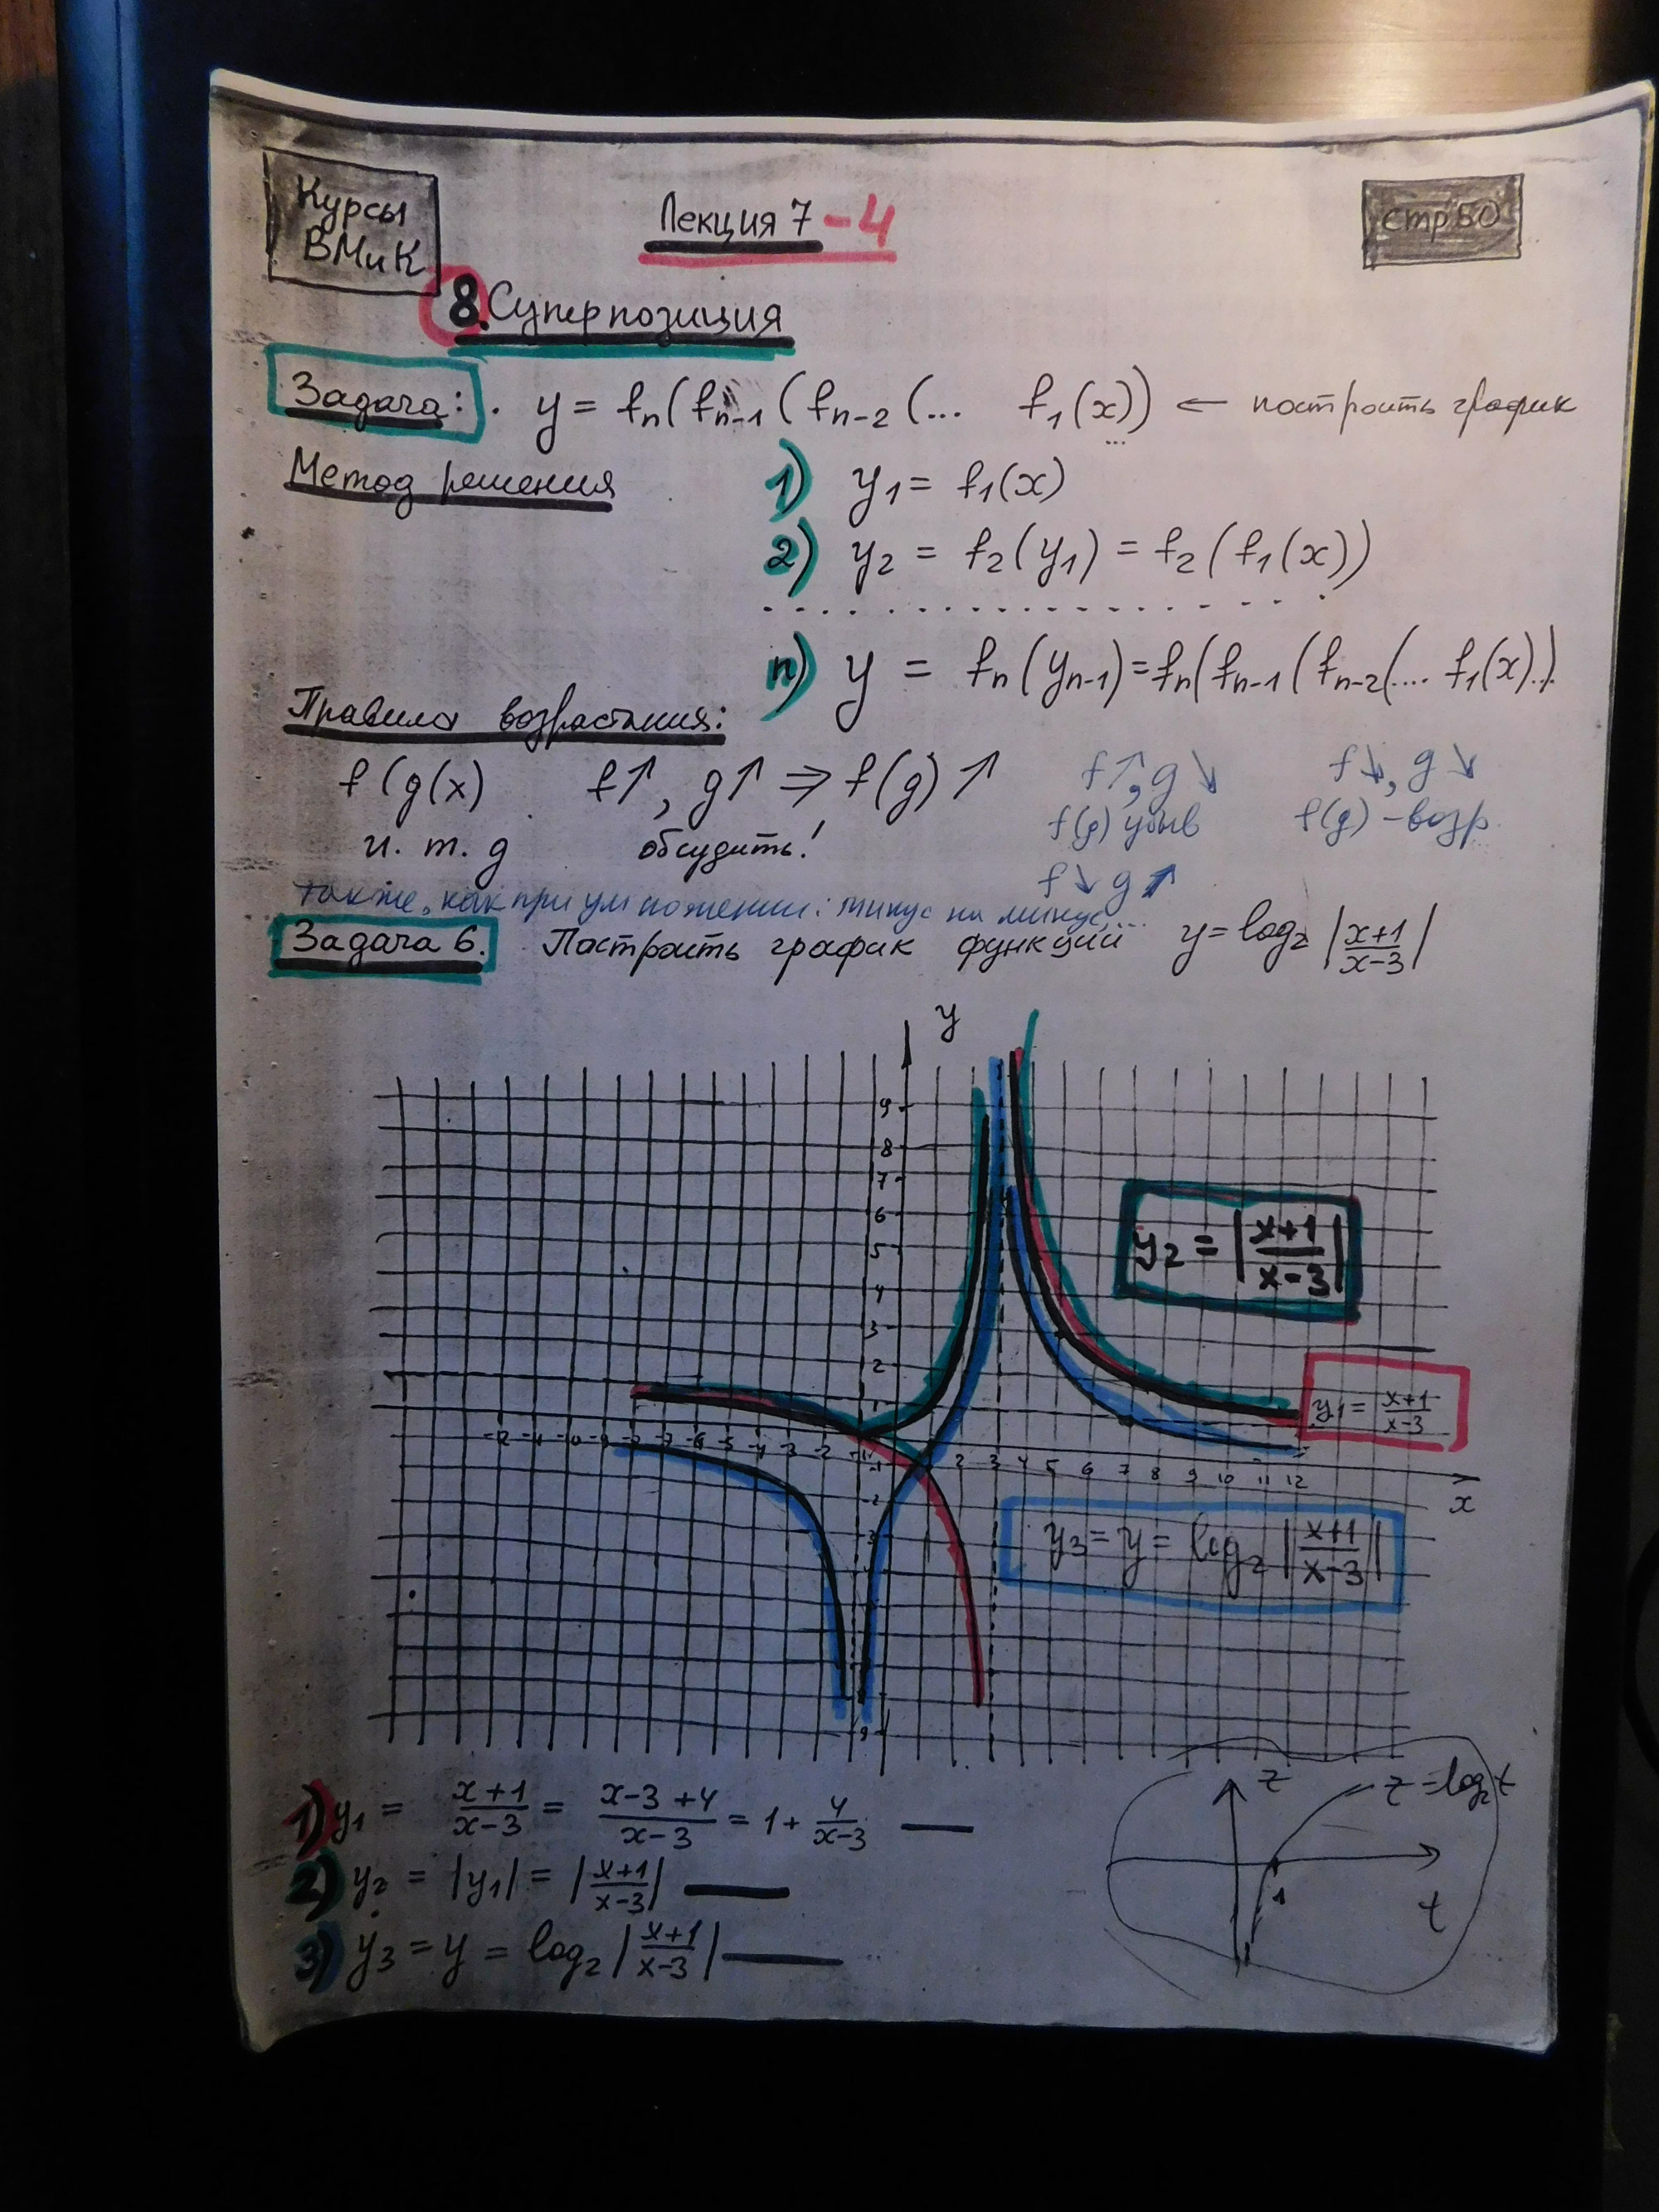 Курсы
ВМиК
Лекция 7 - 4
стр 50
8. Суперпозиция
Задача: . y = fn(fn-1(fn-2(... f1(x)) ← построить график
...
Метод решения
1) y1 = f1(x)
2) y2 = f2(y1) = f2(f1(x))
n) y = fn(yn-1) = fn(fn-1(fn-2(.... f1(x)..)
Правила возрастания:
f(g(x) f↑, g↑ ⇒ f(g)↑ f↑, g↘ f↘, g↘
и. т. д обсудить! f(g) убыв f(g) - возр.
f↘ g↗
также, как при умножении: минус на минус,...
Задача 6. Построить график функции y = log2 |(x+1)/(x-3)|
y
9
8
7
6
5
4
3
2
1
y2 = |(x+1)/(x-3)|
y1 = (x+1)/(x-3)
-7 -6 -5 -4 -3 -2 -1
2 3 4 5 6 7 8 9 10 11 12
x
-1
-2
3
9
y3 = y = log2 |(x+1)/(x-3)|
1) y1 = (x+1)/(x-3) = (x-3+4)/(x-3) = 1 + 4/(x-3) —
2) y2 = |y1| = |(x+1)/(x-3)| —
3) y3 = y = log2 |(x+1)/(x-3)| —
z
z = log2 t
1
t